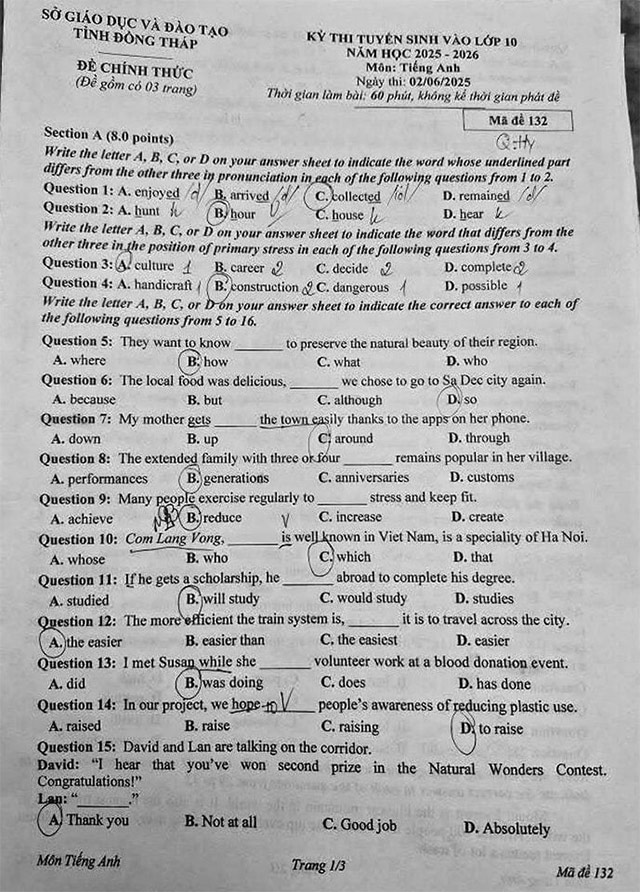 SỞ GIÁO DỤC VÀ ĐÀO TẠO
TỈNH ĐỒNG THÁP
ĐỀ CHÍNH THỨC
(Đề gồm có 03 trang)
KỲ THI TUYỂN SINH VÀO LỚP 10
NĂM HỌC 2025 - 2026
Môn: Tiếng Anh
Ngày thi: 02/06/2025
Thời gian làm bài: 60 phút, không kể thời gian phát đề
Mã đề 132
Section A (8.0 points)
Write the letter A, B, C, or D on your answer sheet to indicate the word whose underlined part
differs from the other three in pronunciation in each of the following questions from 1 to 2.
Question 1: A. enjoyed /d/ B. arrived /d/ C. collected /id/ D. remained /d/
Question 2: A. hunt h B. hour C. house h D. hear h
Write the letter A, B, C, or D on your answer sheet to indicate the word that differs from the
other three in the position of primary stress in each of the following questions from 3 to 4.
Question 3: A. culture 1 B. career 2 C. decide 2 D. complete 2
Question 4: A. handicraft 1 B. construction 2 C. dangerous 1 D. possible 1
Write the letter A, B, C, or D on your answer sheet to indicate the correct answer to each of
the following questions from 5 to 16.
Question 5: They want to know ______ to preserve the natural beauty of their region.
A. where B. how C. what D. who
Question 6: The local food was delicious, ______ we chose to go to Sa Dec city again.
A. because B. but C. although D. so
Question 7: My mother gets ______ the town easily thanks to the apps on her phone.
A. down B. up C. around D. through
Question 8: The extended family with three or four ______ remains popular in her village.
A. performances B. generations C. anniversaries D. customs
Question 9: Many people exercise regularly to ______ stress and keep fit.
A. achieve B. reduce V C. increase D. create
Question 10: Com Lang Vong, ______ is well known in Viet Nam, is a speciality of Ha Noi.
A. whose B. who C. which D. that
Question 11: If he gets a scholarship, he ______ abroad to complete his degree.
A. studied B. will study C. would study D. studies
Question 12: The more efficient the train system is, ______ it is to travel across the city.
A. the easier B. easier than C. the easiest D. easier
Question 13: I met Susan while she ______ volunteer work at a blood donation event.
A. did B. was doing C. does D. has done
Question 14: In our project, we hope to V ______ people's awareness of reducing plastic use.
A. raised B. raise C. raising D. to raise
Question 15: David and Lan are talking on the corridor.
David: “I hear that you've won second prize in the Natural Wonders Contest.
Congratulations!”
Lan: “______.”
A. Thank you B. Not at all C. Good job D. Absolutely
Môn Tiếng Anh Trang 1/3 Mã đề 132